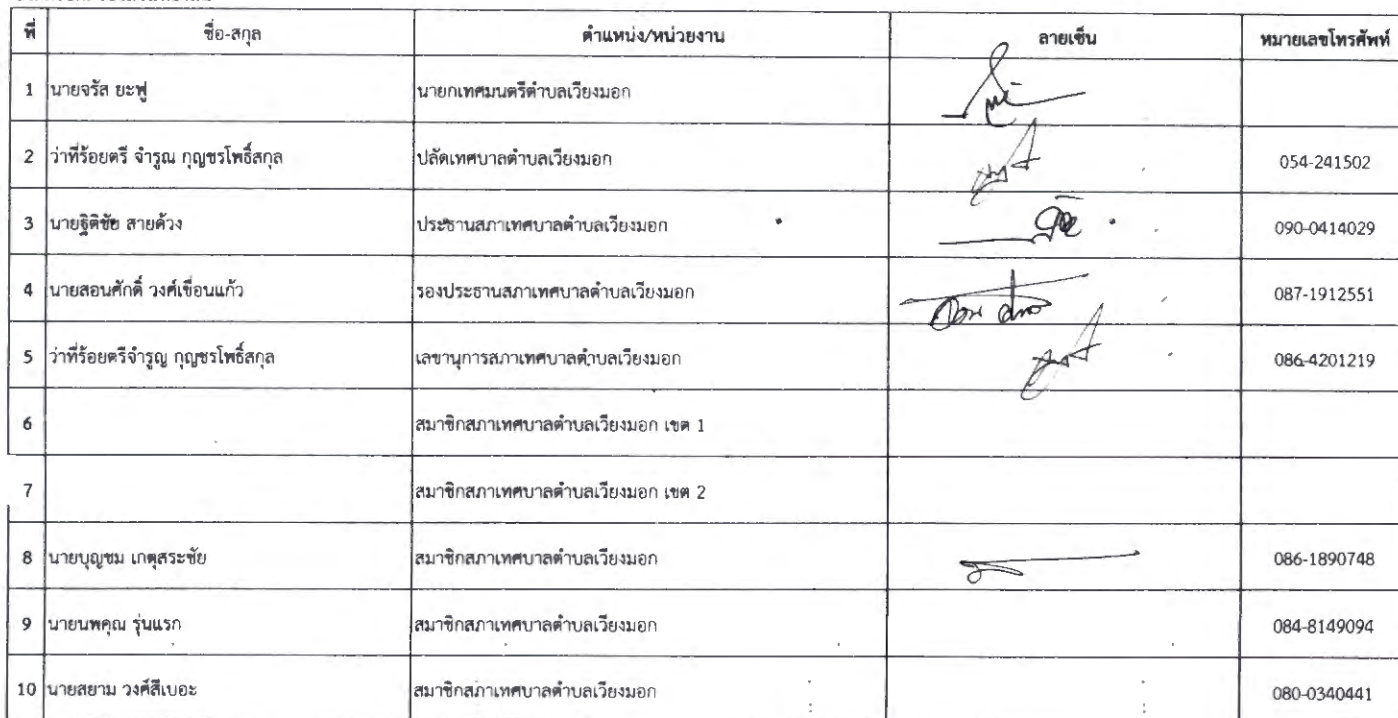 ที่ ชื่อ-สกุล ตำแหน่ง/หน่วยงาน ลายเซ็น หมายเลขโทรศัพท์
1 นายจรัส ยะฟู นายกเทศมนตรีตำบลเวียงมอก
2 ว่าที่ร้อยตรี จำรูณ กุญชรโพธิ์สกุล ปลัดเทศบาลตำบลเวียงมอก 054-241502
3 นายฐิติชัย สายด้วง ประธานสภาเทศบาลตำบลเวียงมอก 090-0414029
4 นายสอนศักดิ์ วงศ์เขื่อนแก้ว รองประธานสภาเทศบาลตำบลเวียงมอก 087-1912551
5 ว่าที่ร้อยตรีจำรูญ กุญชรโพธิ์สกุล เลขานุการสภาเทศบาลตำบลเวียงมอก 086-4201219
6 สมาชิกสภาเทศบาลตำบลเวียงมอก เขต 1
7 สมาชิกสภาเทศบาลตำบลเวียงมอก เขต 2
8 นายบุญชม เกตุสระชัย สมาชิกสภาเทศบาลตำบลเวียงมอก 086-1890748
9 นายนพคุณ รุ่นแรก สมาชิกสภาเทศบาลตำบลเวียงมอก 084-8149094
10 นายสยาม วงศ์สีเบอะ สมาชิกสภาเทศบาลตำบลเวียงมอก 080-0340441